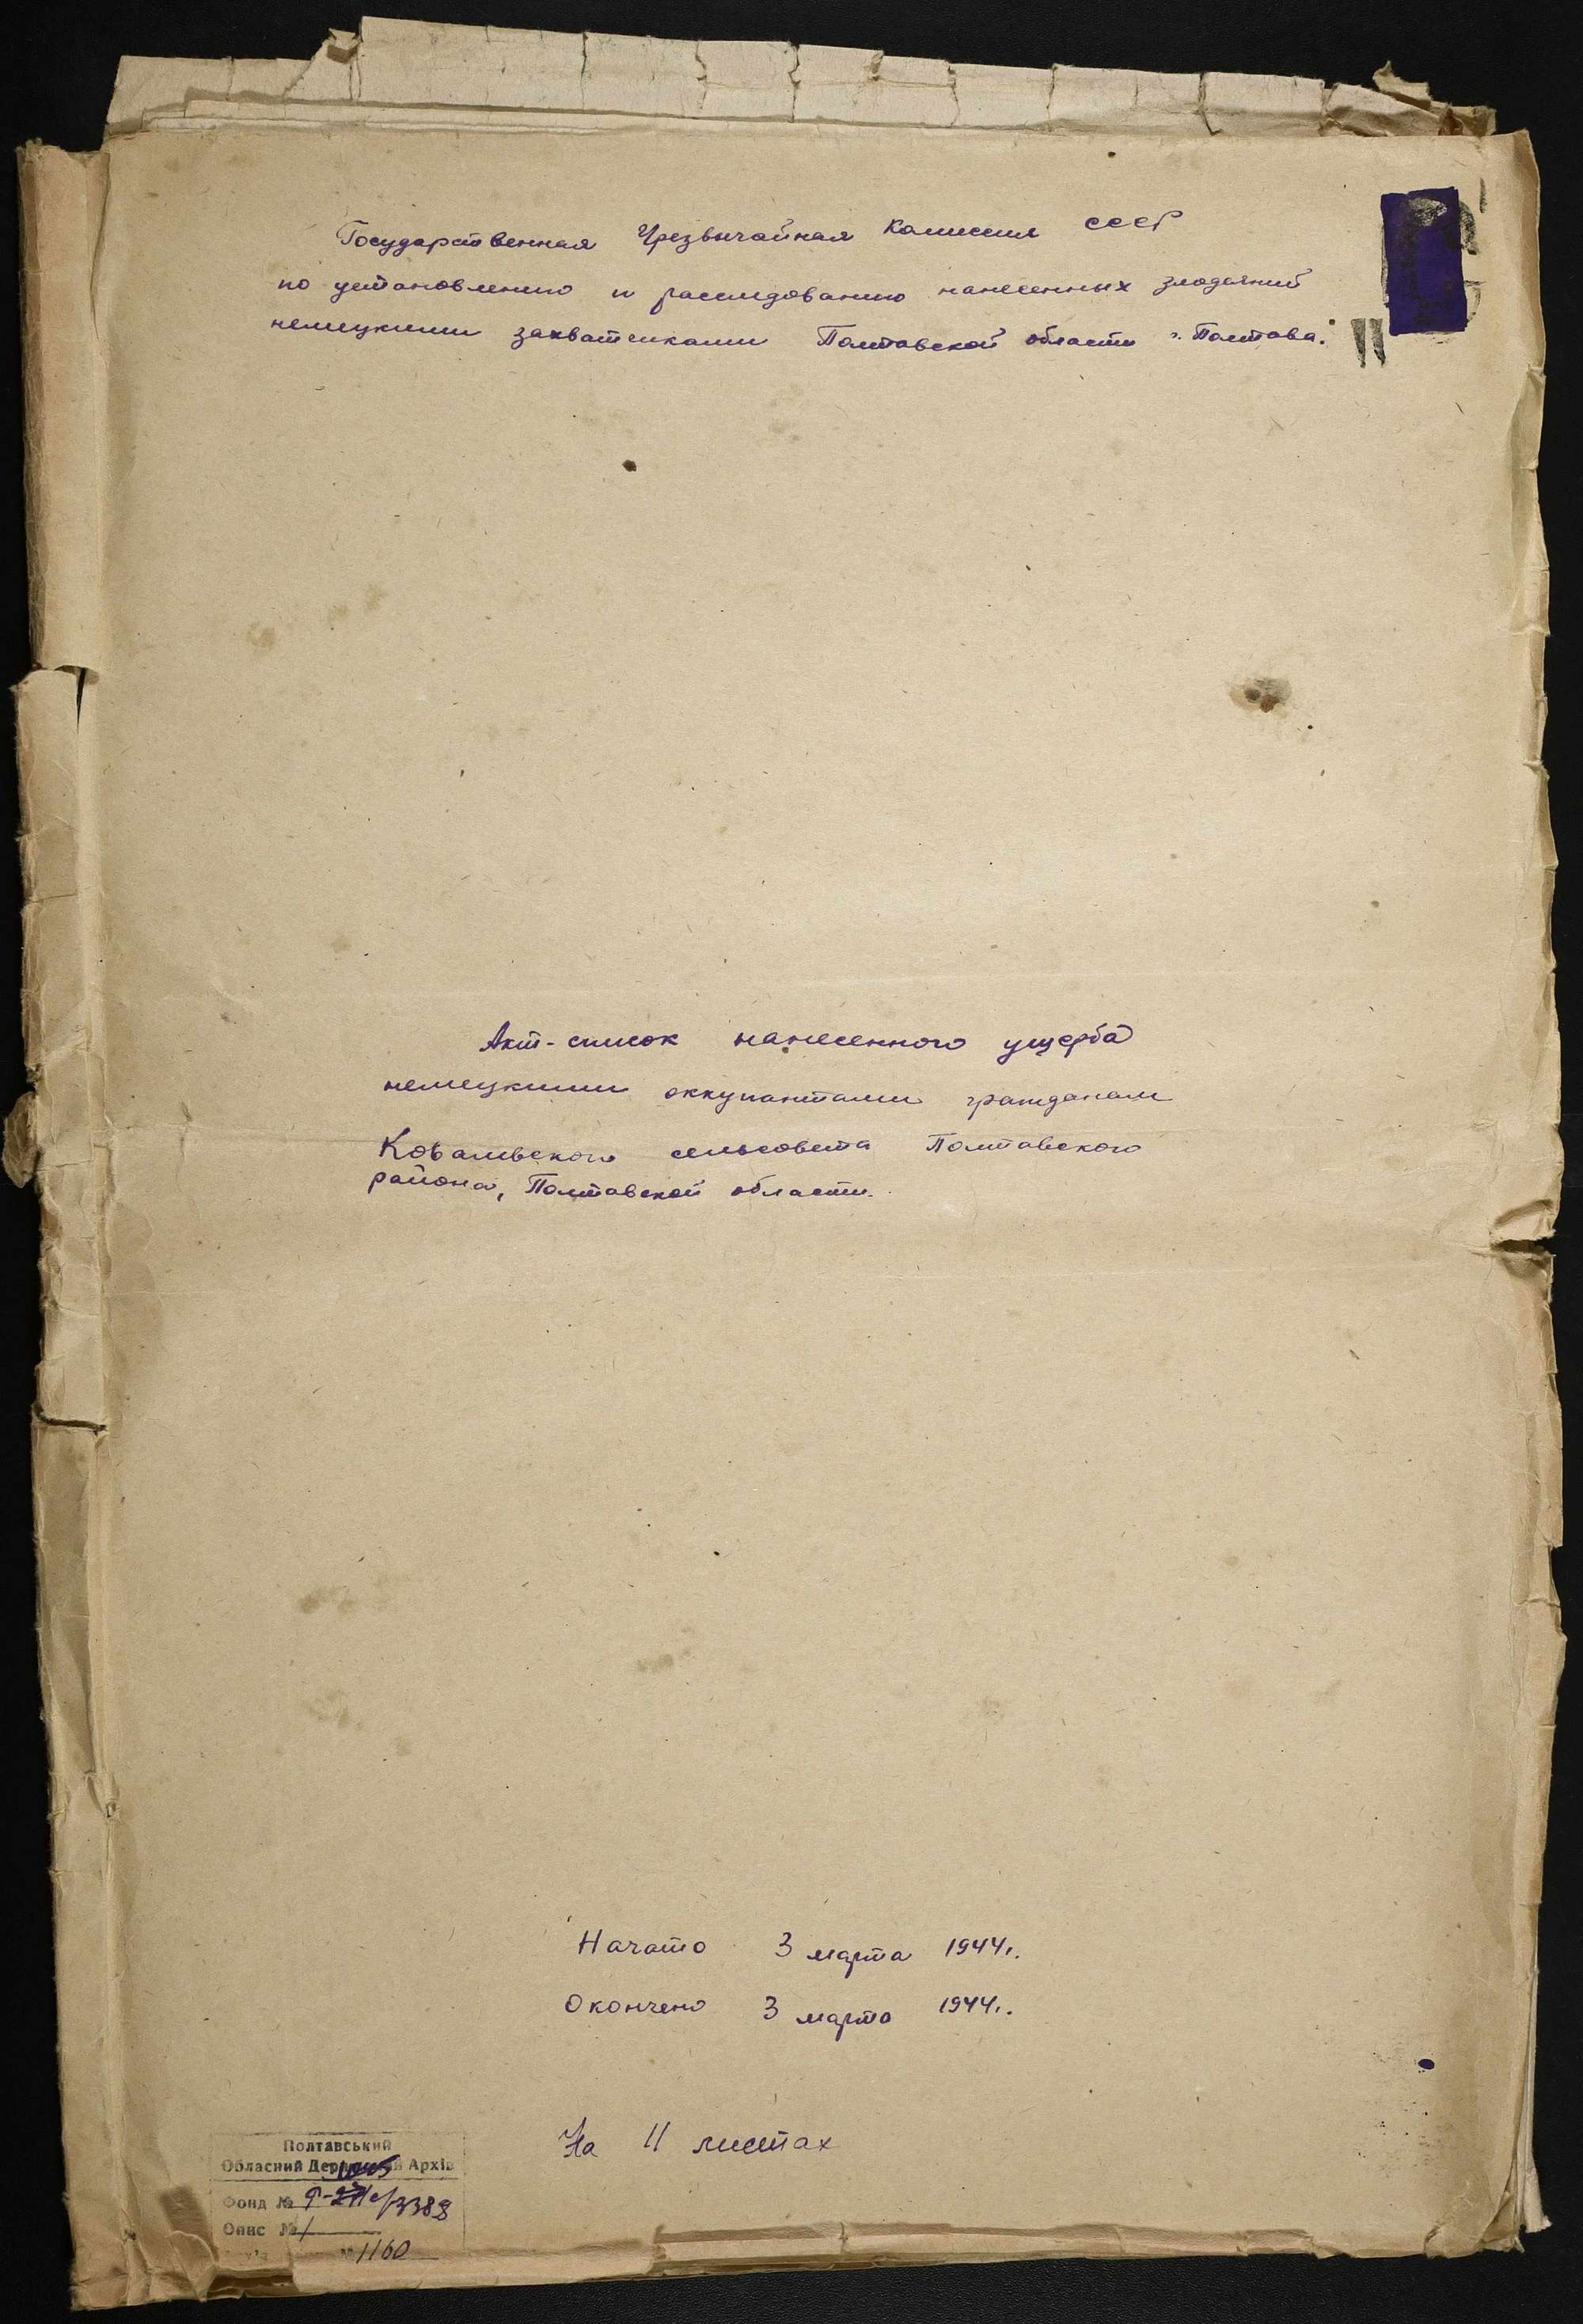 Государственная Чрезвычайная Комиссия СССР
по установлению и расследованию нанесенных злодеяний
немецкими захватчиками Полтавской области г. Полтава.
11
Акт-список нанесенного ущерба
немецкими оккупантами гражданам
Коваливского сельсовета Полтавского
района, Полтавской области.
Начато 3 марта 1944 г.
Окончено 3 марта 1944 г.
На 11 листах
Полтавський
Обласний Державний Архів
Фонд № Р-3388
Опис № 1
№ 1160